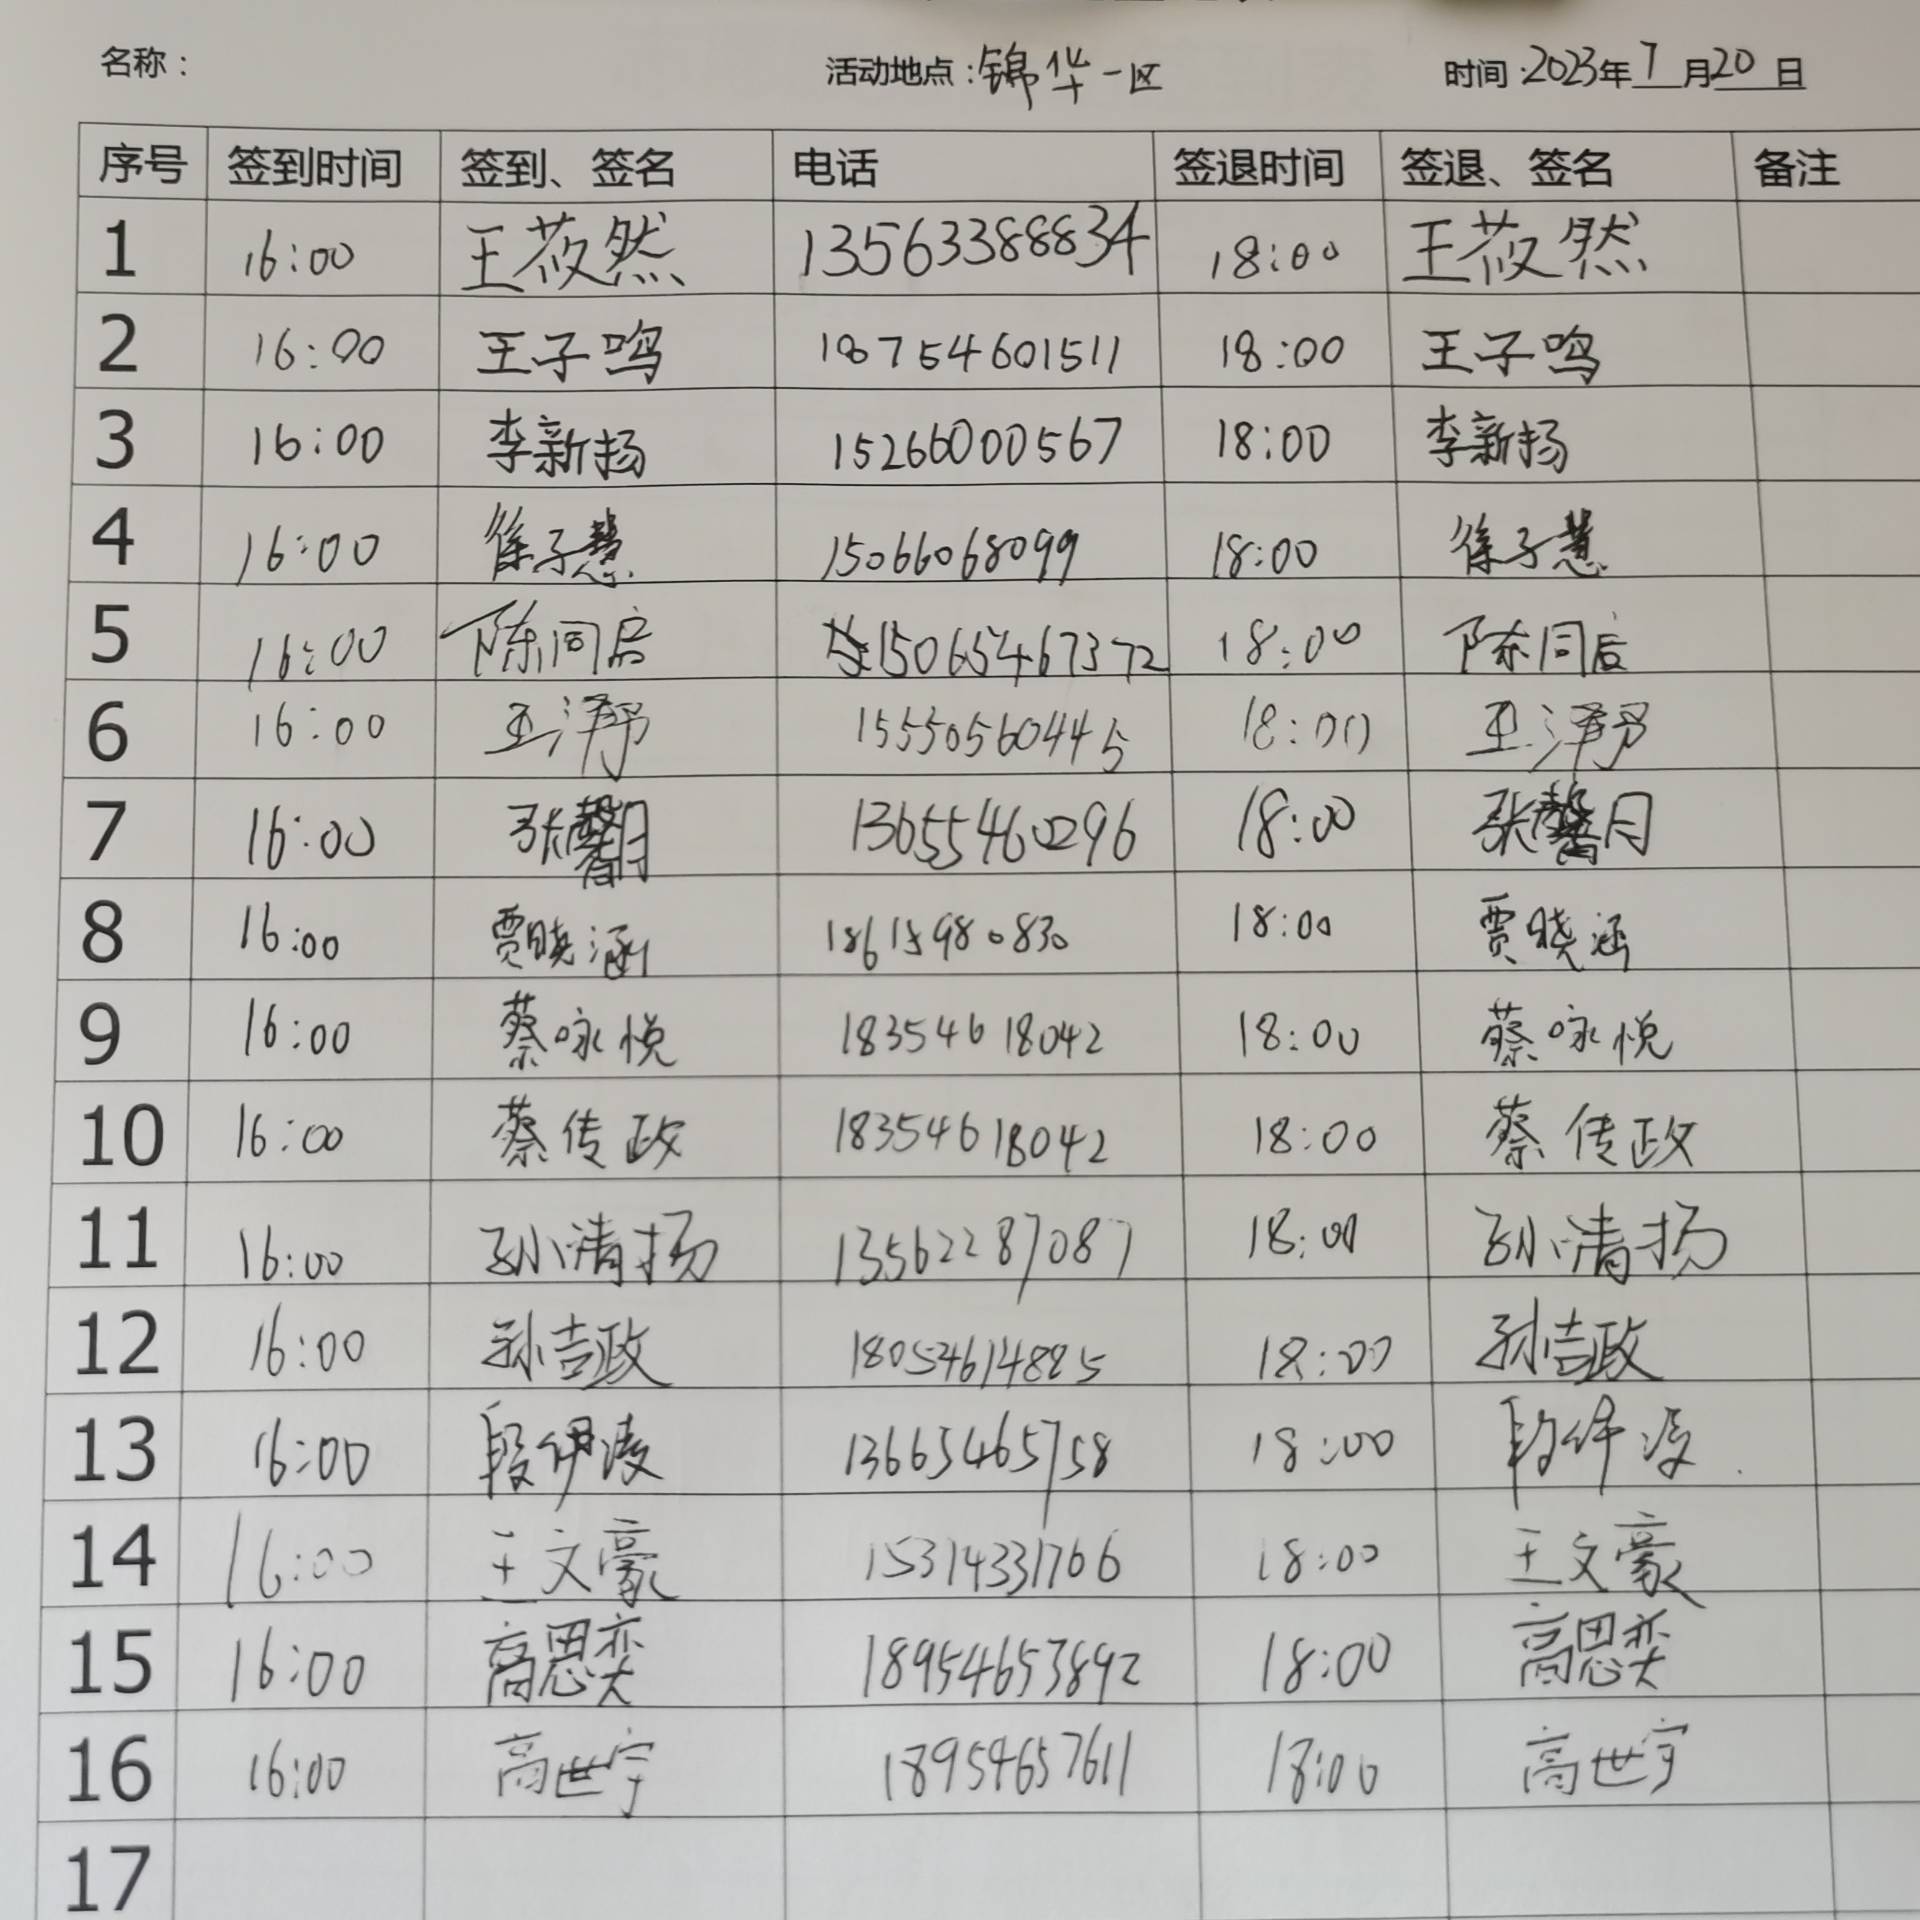 名称： 活动地点：锦华一区 时间：2023年7月20日
序号 签到时间 签到、签名 电话 签退时间 签退、签名 备注
1 16:00 王莜然 13563388834 18:00 王莜然
2 16:00 王子鸣 18754601511 18:00 王子鸣
3 16:00 李新扬 15266000567 18:00 李新扬
4 16:00 徐子慧 15066068099 18:00 徐子慧
5 16:00 陈同启 15065467372 18:00 陈同启
6 16:00 王泽予 15550560445 18:00 王泽予
7 16:00 张馨月 13655460296 18:00 张馨月
8 16:00 贾晓涵 18615980830 18:00 贾晓涵
9 16:00 蔡咏悦 18354618042 18:00 蔡咏悦
10 16:00 蔡传政 18354618042 18:00 蔡传政
11 16:00 孙清扬 13562287087 18:00 孙清扬
12 16:00 孙吉政 18054614885 18:00 孙吉政
13 16:00 段伊凌 13665465758 18:00 段伊凌
14 16:00 王文豪 15314331766 18:00 王文豪
15 16:00 高思奕 18954653892 18:00 高思奕
16 16:00 高世宇 18954657611 18:00 高世宇
17